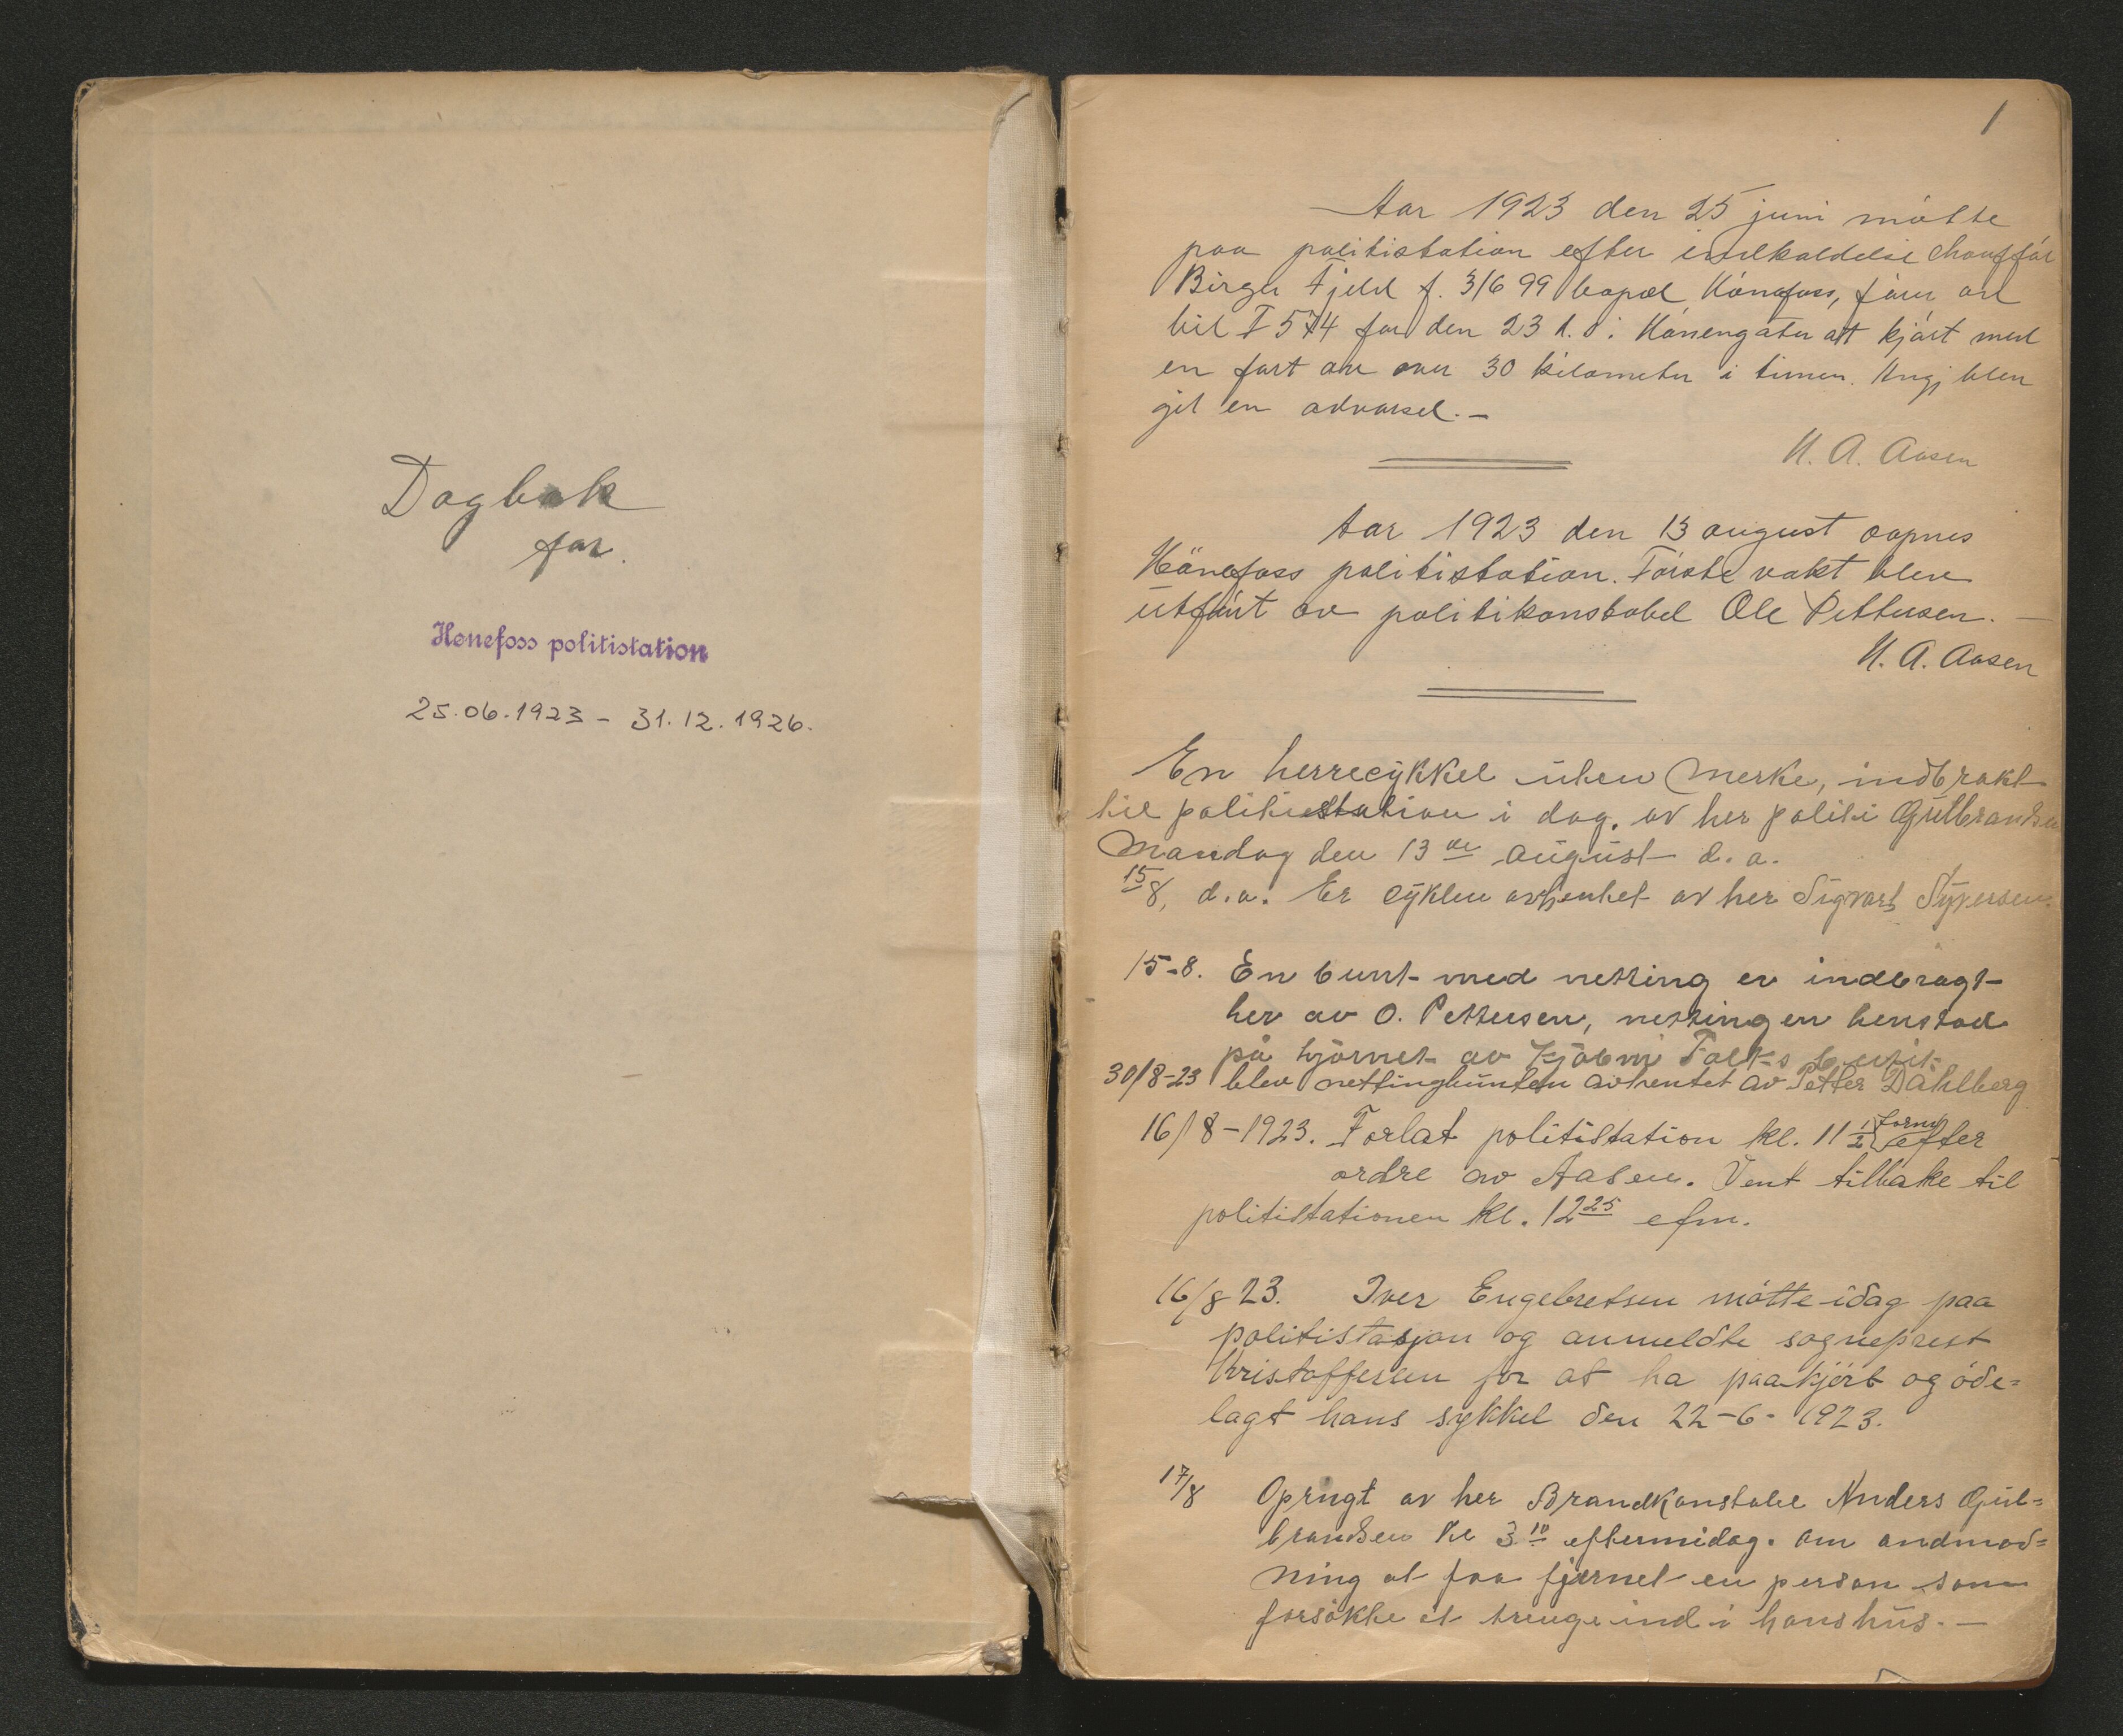 Dagbok
for.
Hønefoss politistation
25.06.1923 - 31.12.1926.
1
Aar 1923 den 25 juni møtte
paa politistation efter indkaldelse chauffør
Birger Fjeld f. 3/6 99 bopæl Hønefoss, fører av
bil F 574 for den 23 d. s. i Hønengaten at kjørt med
en fart av over 30 kilometer i timen. Ungj blev
git en advarsel. —
H. A. Aasen
Aar 1923 den 13 august aapnes
Hønefoss politistation. Første vakt blev
utført av politikonstabel Ole Pettersen. —
H. A. Aasen
En herrecykkel uten merke, indbrakt
til politistation i dag. av her politi Gulbrandsen
Mandag den 13 de august d. a.
15/8, d.a. Er cyklen avhentet av her Sigvart Syversen.
15-8. En bunt med netting er indbragt
her av O. Pettersen, nettingen henstod
på hjørnet av Kjøbm Falks
30/8-23 blev nettingbunten avhentet av Petter Dahlberg
16/8-1923. Forlat politistation kl. 11 1/2 form efter
ordre av Aasen. Vent tilbake til
politistationen kl. 12 25 efm.
16/8 23. Iver Engebretsen møtte idag paa
politistasjon og anmeldte sogneprest
Kristoffersen for at ha paakjørt og øde=
lagt hans sykkel den 22-6-1923.
17/8 Opringt av her Brandkonstabel Anders Gul=
brandsen kl 3 10 eftermidag. om andmod=
ning at faa fjernet en person som
forsøkte at trenge ind i hans hus. —